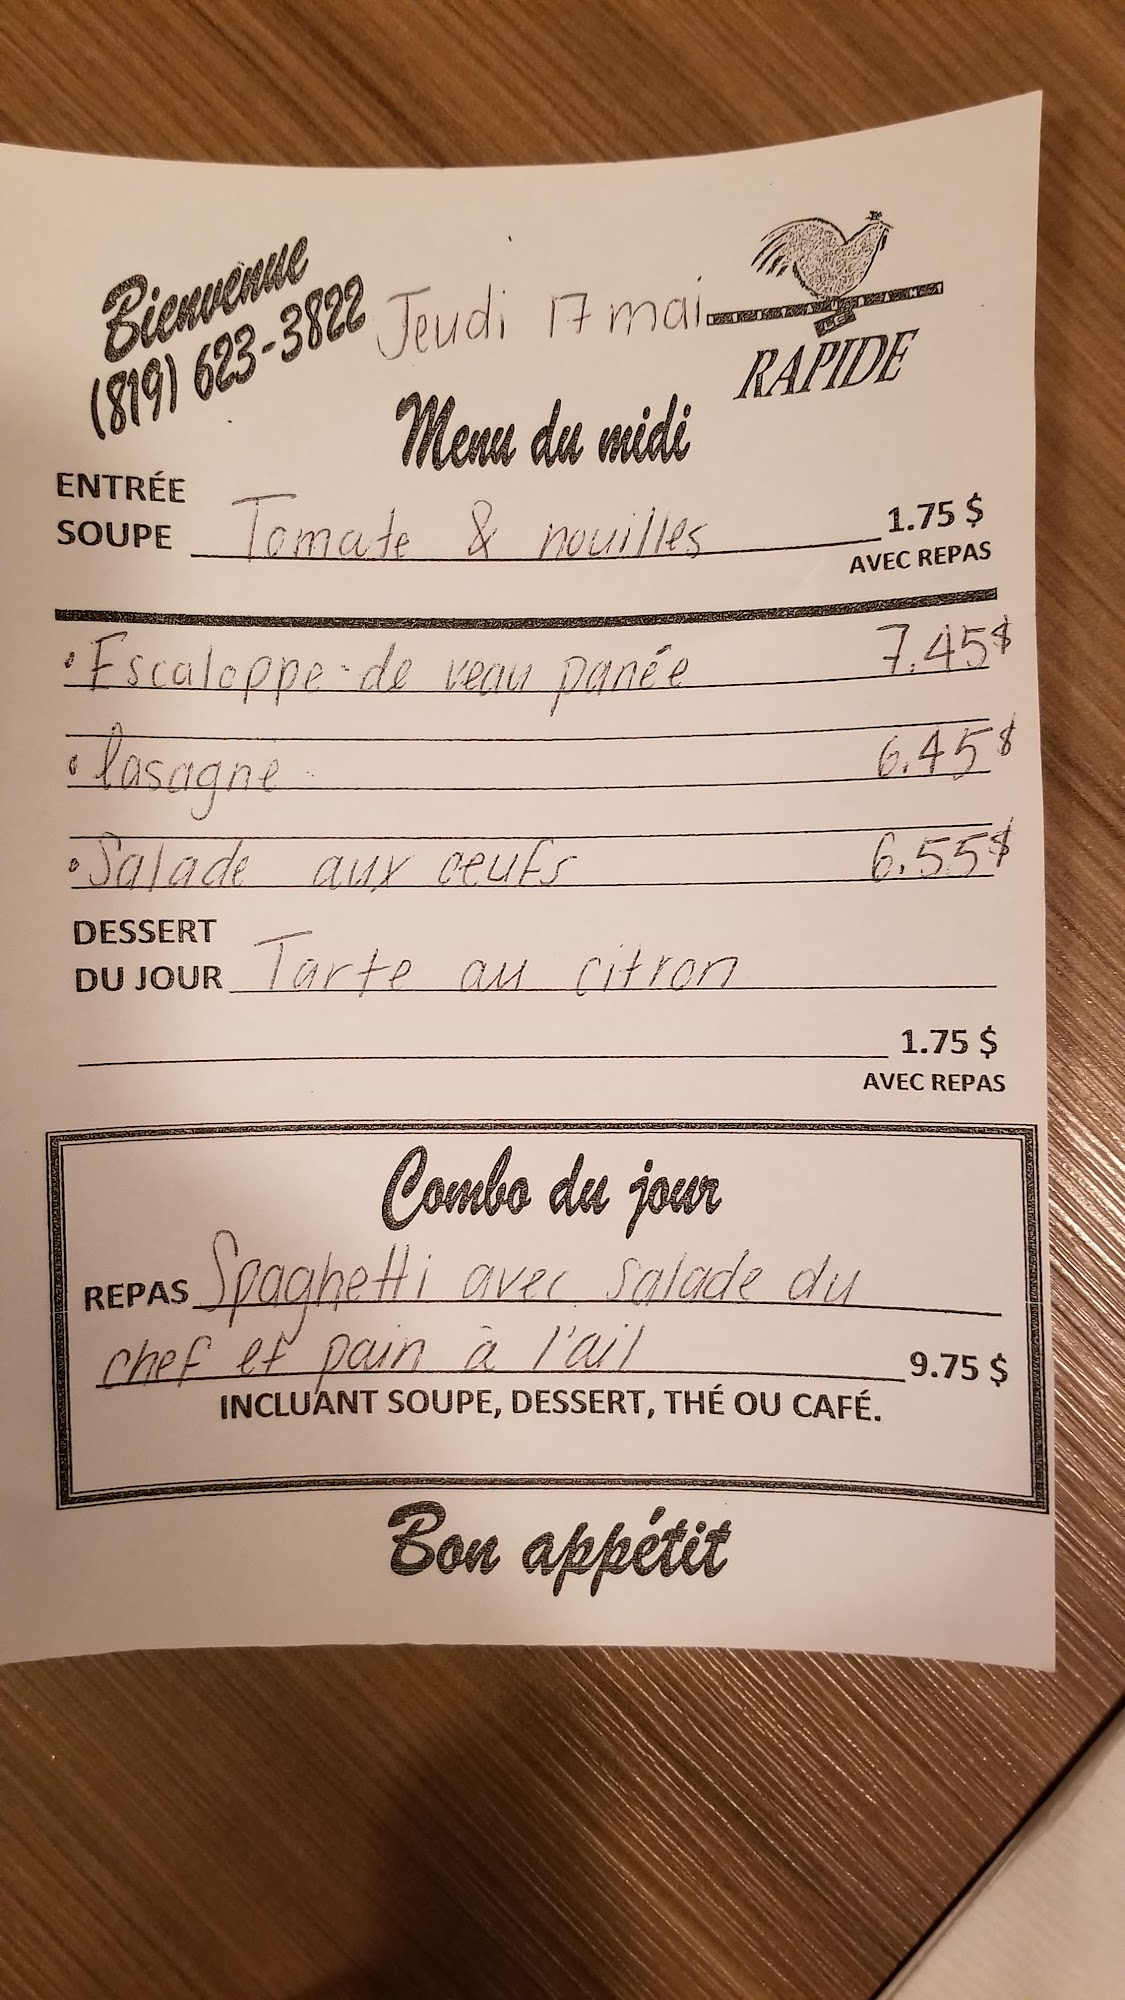 Bienvenue
(819) 623-3822
Jeudi 17 mai
RAPIDE
Menu du midi
ENTRÉE
SOUPE Tomate & nouilles 1.75 $
AVEC REPAS
• Escaloppe de veau panée 7.45$
• lasagne 6.45$
• Salade aux oeufs 6.55$
DESSERT
DU JOUR Tarte au citron
1.75 $
AVEC REPAS
Combo du jour
REPAS Spaghetti avec salade du
chef et pain à l'ail 9.75 $
INCLUANT SOUPE, DESSERT, THÉ OU CAFÉ.
Bon appétit